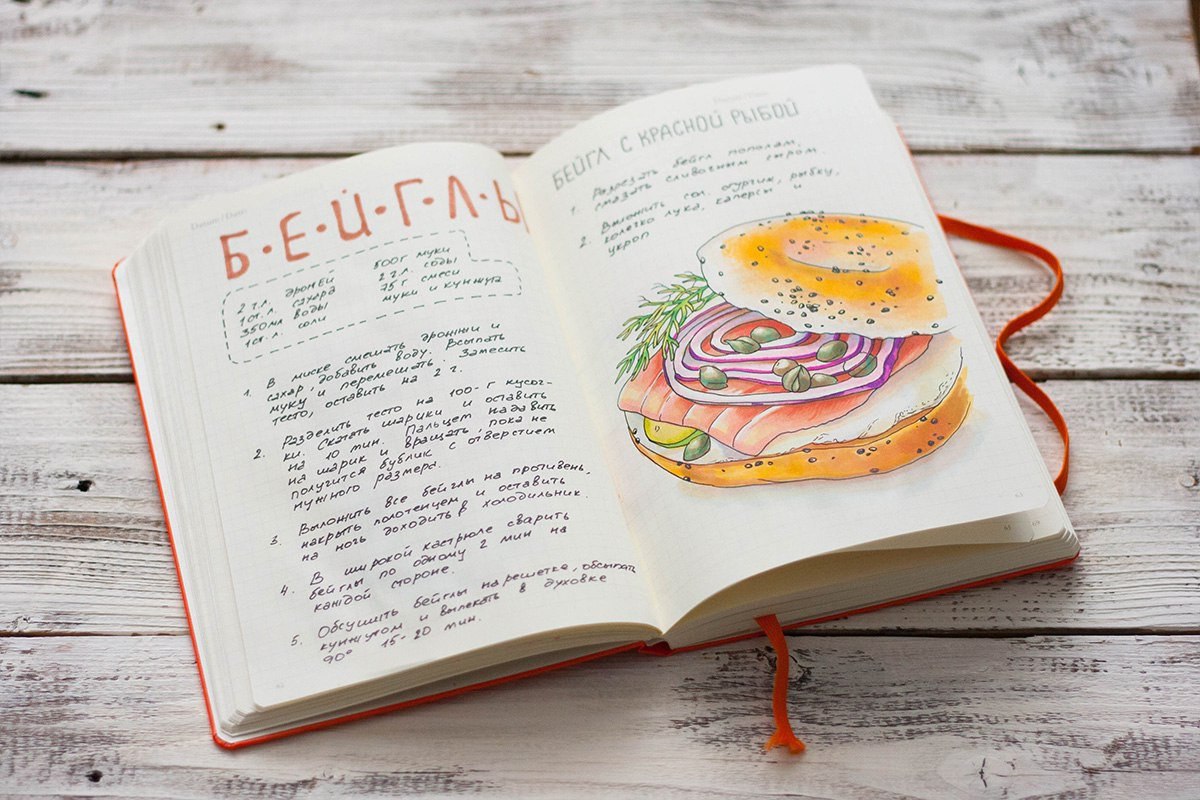 Datum / Date:
Б·Е·Й·Г·Л·Ы
2 ч.л. дрожжей
1 ст.л. сахара
350мл воды
1 ст. л. соли
500г муки
2 ч.л. соды
25 г смеси
муки и кунжута
1. В миске смешать дрожжи и
сахар, добавить воду. Всыпать
муку и перемешать. Замесить
тесто, оставить на 2 г.
2. Разделить тесто на 100-г кусоч-
ки. Скатать шарики и оставить
на 10 мин. Пальцем надавить
на шарик и вращать, пока не
получится бублик с отверстием
нужного размера.
3. Выложить все бейглы на противень,
накрыть полотенцем и оставить
на ночь доходить в холодильник.
4. В широкой кастрюле сварить
бейглы по одному 2 мин на
каждой стороне.
5. Обсушить бейглы на решетке, обсыпать
кунжутом и выпекать в духовке
90° 15-20 мин.
БЕЙГЛ С КРАСНОЙ РЫБОЙ
1. Разрезать бейгл пополам,
смазать сливочным сыром.
2. Выложить сол. огурчик, рыбку,
колечко лука, каперсы и
укроп